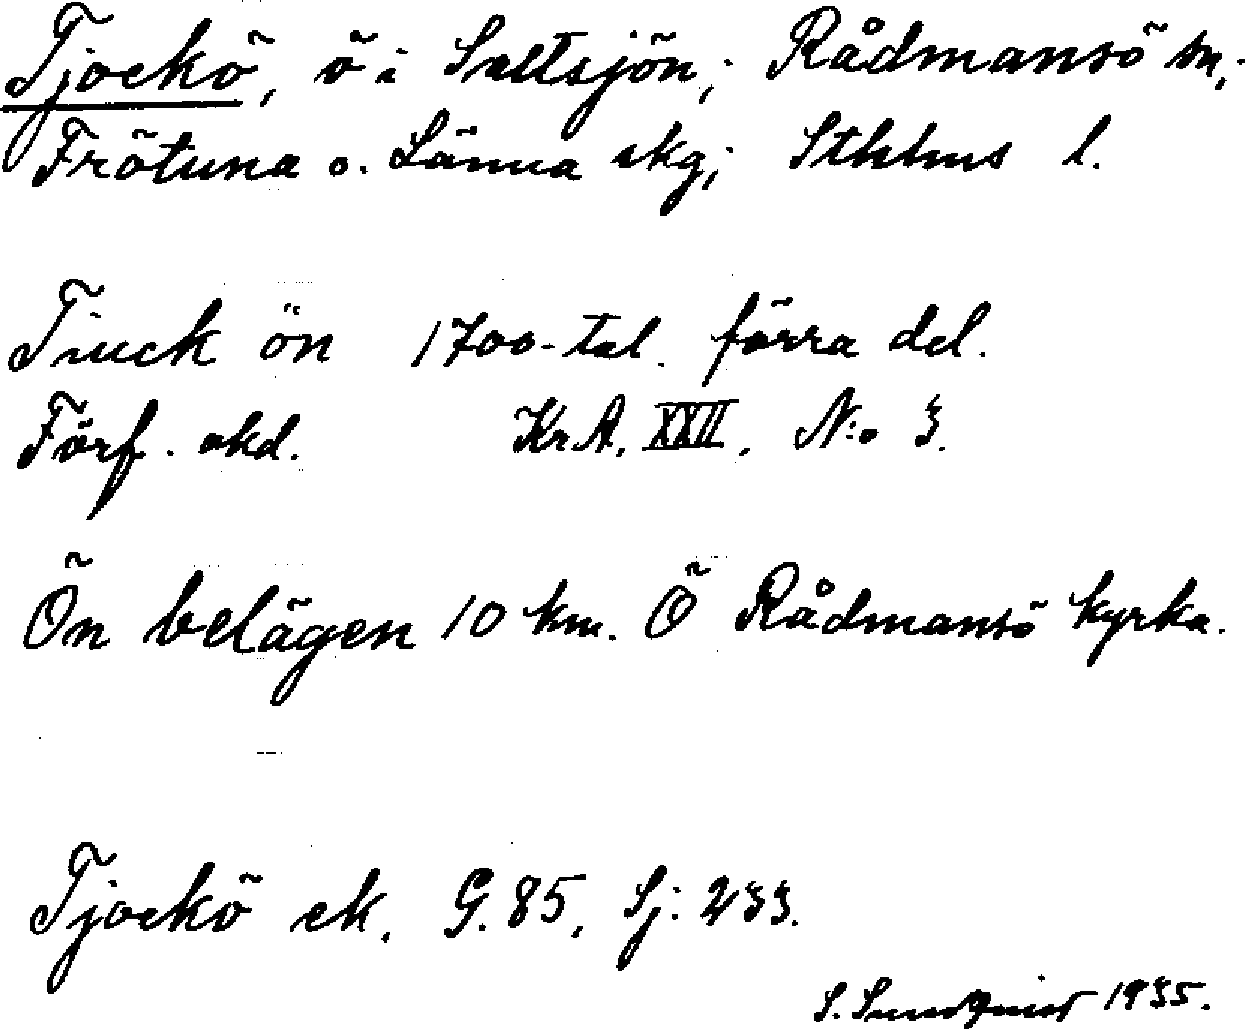 Tjockö, ö i Saltsjön; Rådmansö sn,
Frötuna o. Länna skg; Sthlms l.
Tiuck ön 1700-tal. förra del.
Förf. okd. Kr A. XXII, N:o 3.
Ön belägen 10 km. Ö Rådmansö kyrka.
Tjockö ek. G. 85, Sj: 233.
S. Sundquist 1935.